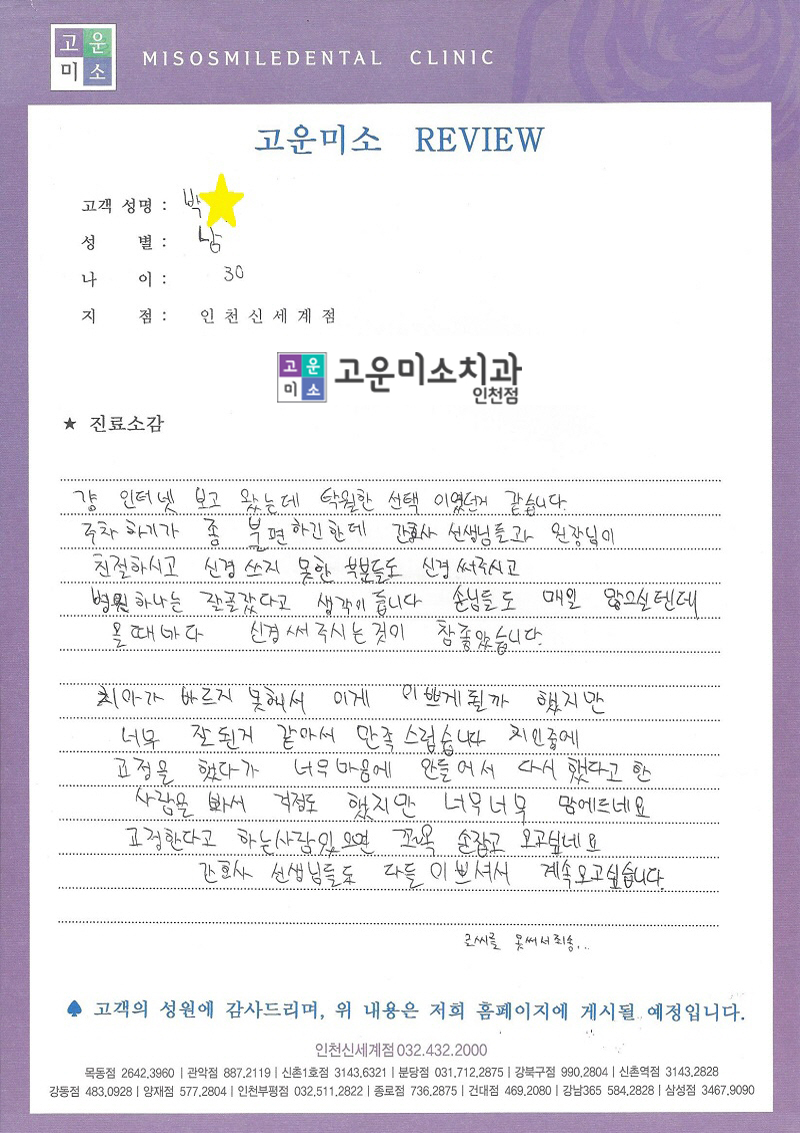 고운
미소
MISOSMILEDENTAL CLINIC
고운미소 REVIEW
고객 성명 : 박
성 별 : 남
나 이 : 30
지 점 : 인천신세계점
고운
미소
고운미소치과
인천점
★ 진료소감
걍 인터넷 보고 왔는데 탁월한 선택 이였던거 같습니다.
주차 하기가 좀 불편하긴한데 간호사 선생님들과 원장님이
친절하시고 신경 쓰지 못한 부분들도 신경 써주시고
병원 하나는 잘골랐다고 생각이 듭니다 손님들도 매일 많으실텐데
올때마다 신경써 주시는것이 참좋았습니다.
치아가 바르지 못해서 이게 이쁘게될까 했지만
너무 잘된거 같아서 만족스럽습니다 지인중에
교정을 했다가 너무마음에 안들어서 다시 했다고 한
사람을 봐서 걱정도 했지만 너무너무 맘에드네요
교정한다고 하는사람있으면 꼬옥 손잡고 오고싶네요
간호사 선생님들도 다들 이쁘셔서 계속오고싶습니다.
글씨를 못써서죄송..
♠ 고객의 성원에 감사드리며, 위 내용은 저희 홈페이지에 게시될 예정입니다.
인천신세계점 032.432.2000
목동점 2642.3960 | 관악점 887.2119 | 신촌1호점 3143.6321 | 분당점 031.712.2875 | 강북구점 990.2804 | 신촌역점 3143.2828
강동점 483.0928 | 양재점 577.2804 | 인천부평점 032.511.2822 | 종로점 736.2875 | 건대점 469.2080 | 강남365 584.2828 | 삼성점 3467.9090